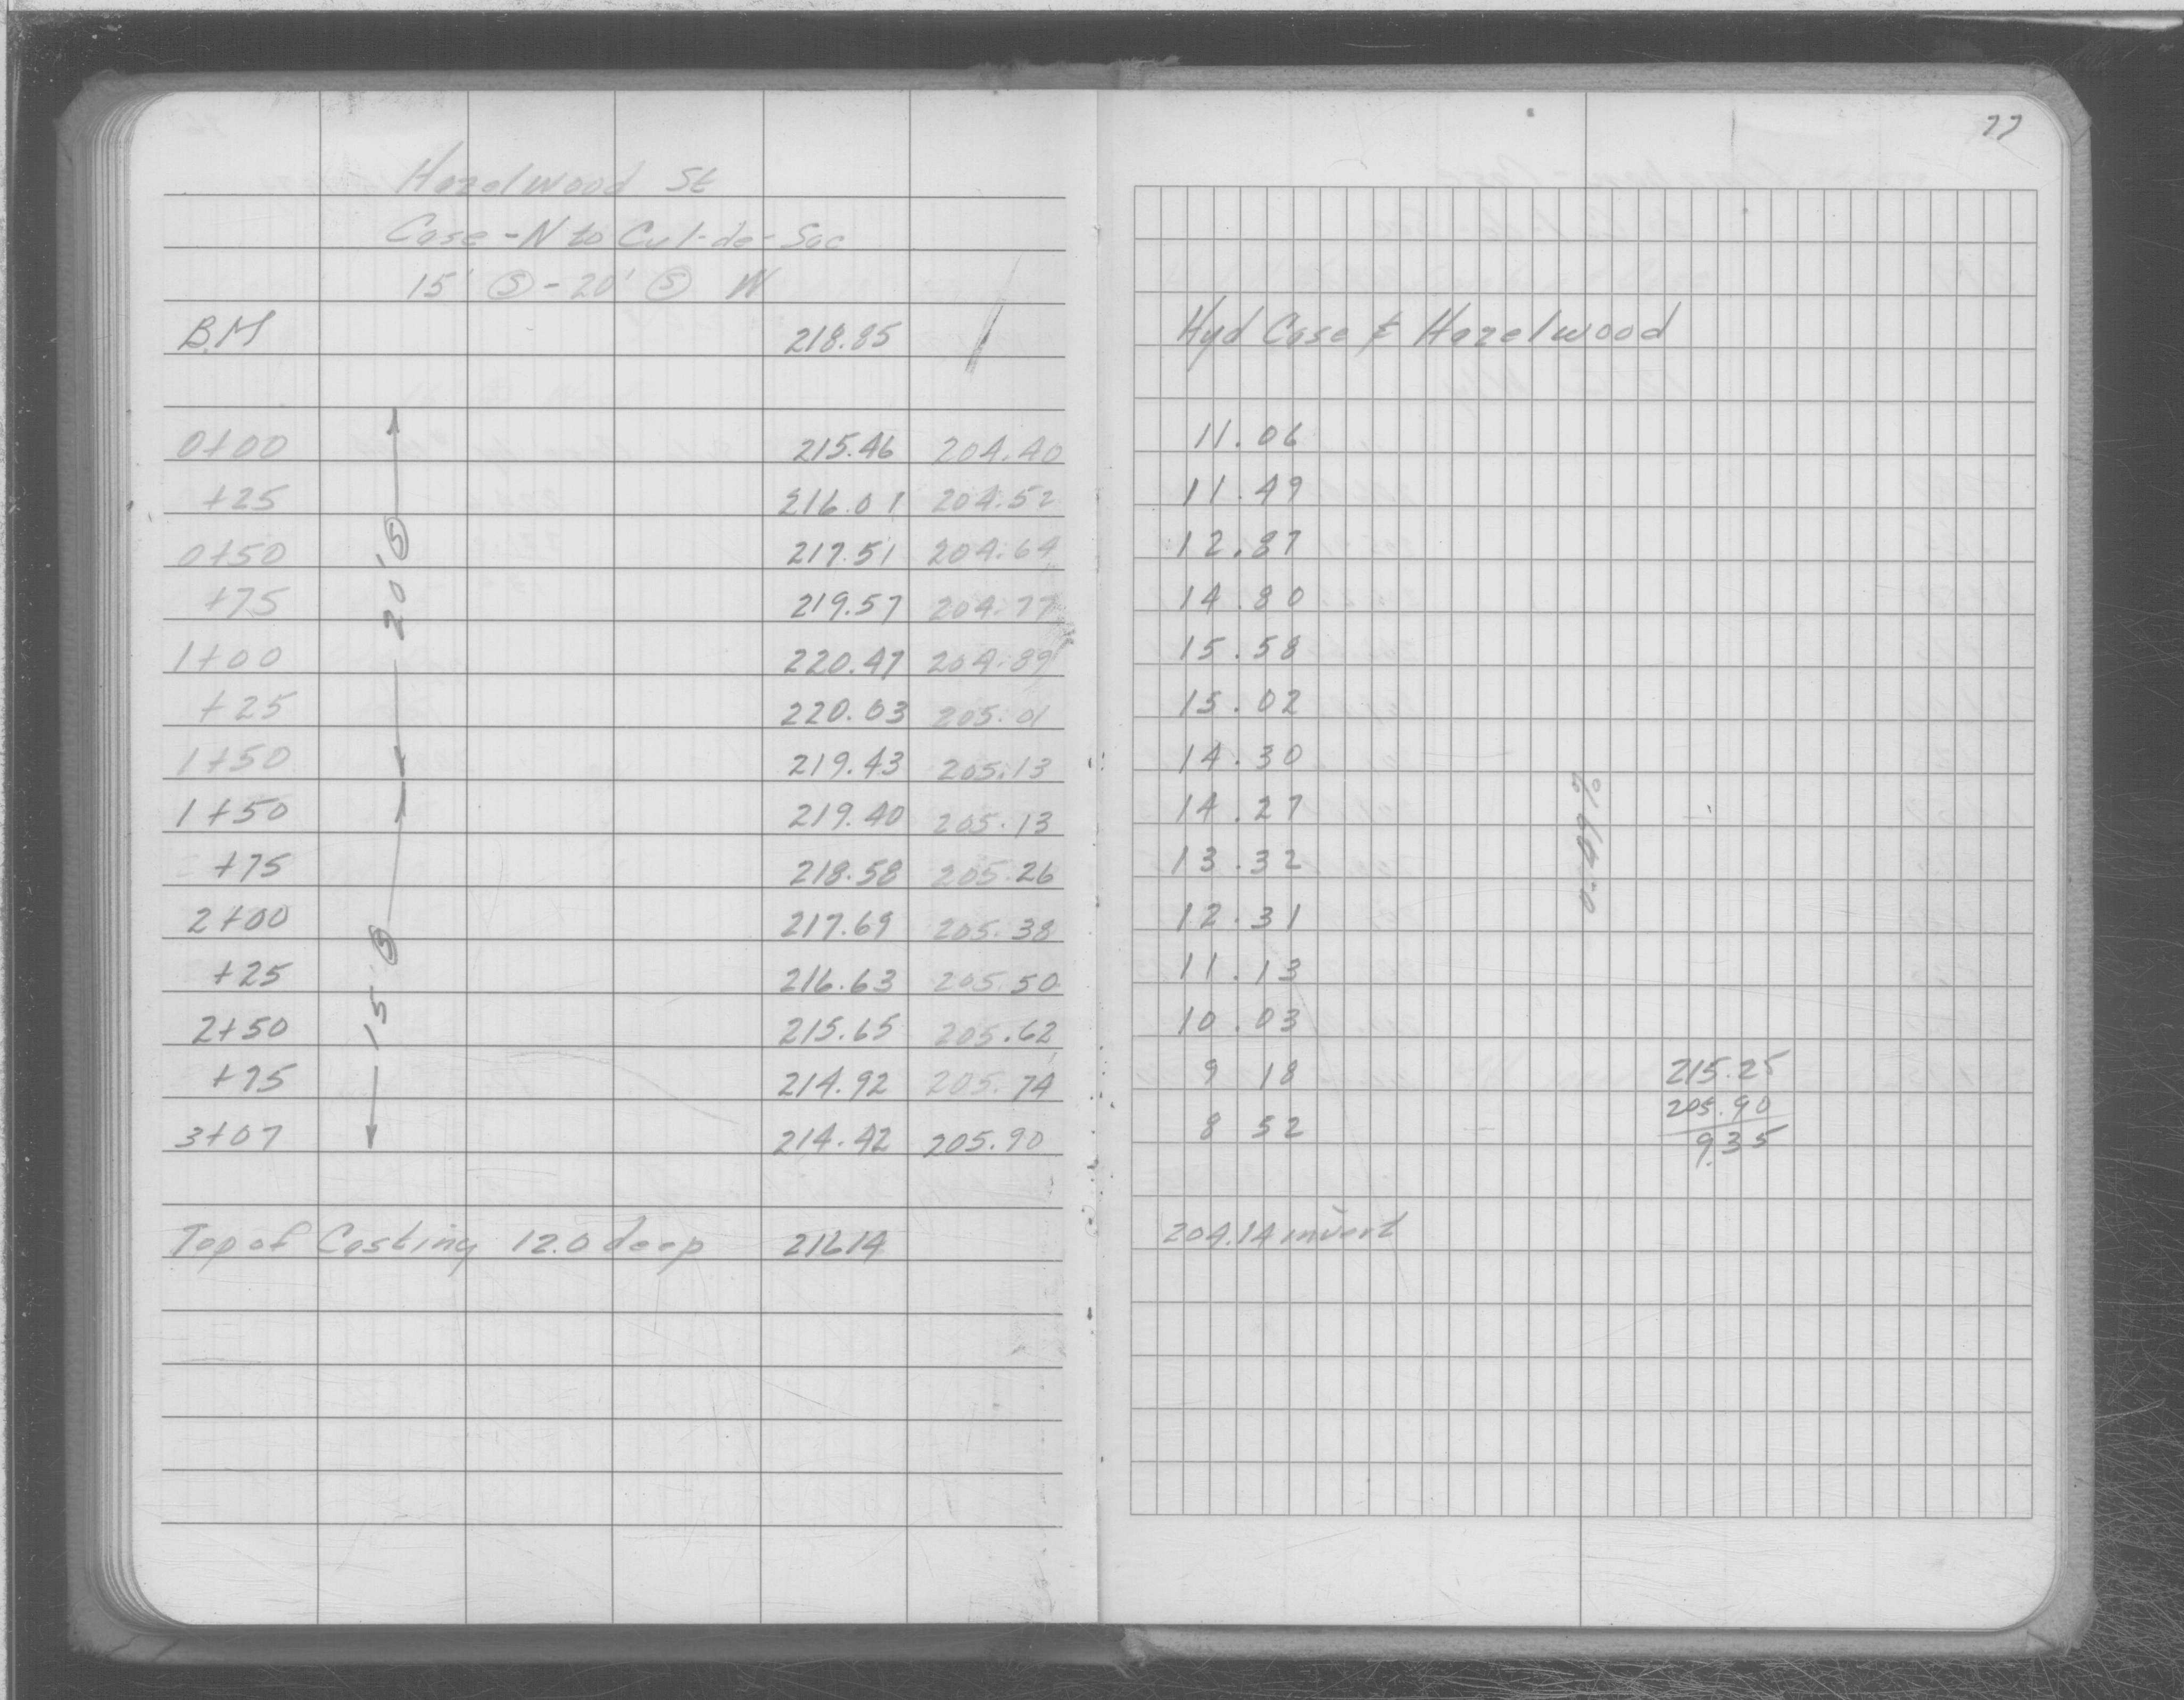 77
Hazelwood St
Case - N to Cul-de-Sac
15' Ⓢ - 20' Ⓢ W
B.M 218.85 Hyd Case & Hazelwood
0+00 215.46 204.40 11.06
+25 216.01 204.52 11.49
0+50 217.51 204.64 12.87
+75 219.57 204.77 14.80
1+00 220.47 204.89 15.58
+25 220.03 205.01 15.02
1+50 219.43 205.13 14.30
20' Ⓢ
1+50 219.40 205.13 14.27
+75 218.58 205.26 13.32
2+00 217.69 205.38 12.31
+25 216.63 205.50 11.13
2+50 215.65 205.62 10.03
+75 214.92 205.74 9 18
3+07 214.42 205.90 8 52
15' Ⓢ
0.49%
215.25
205.90
9.35
Top of Casting 12.0 deep 216.14 204.14 invert